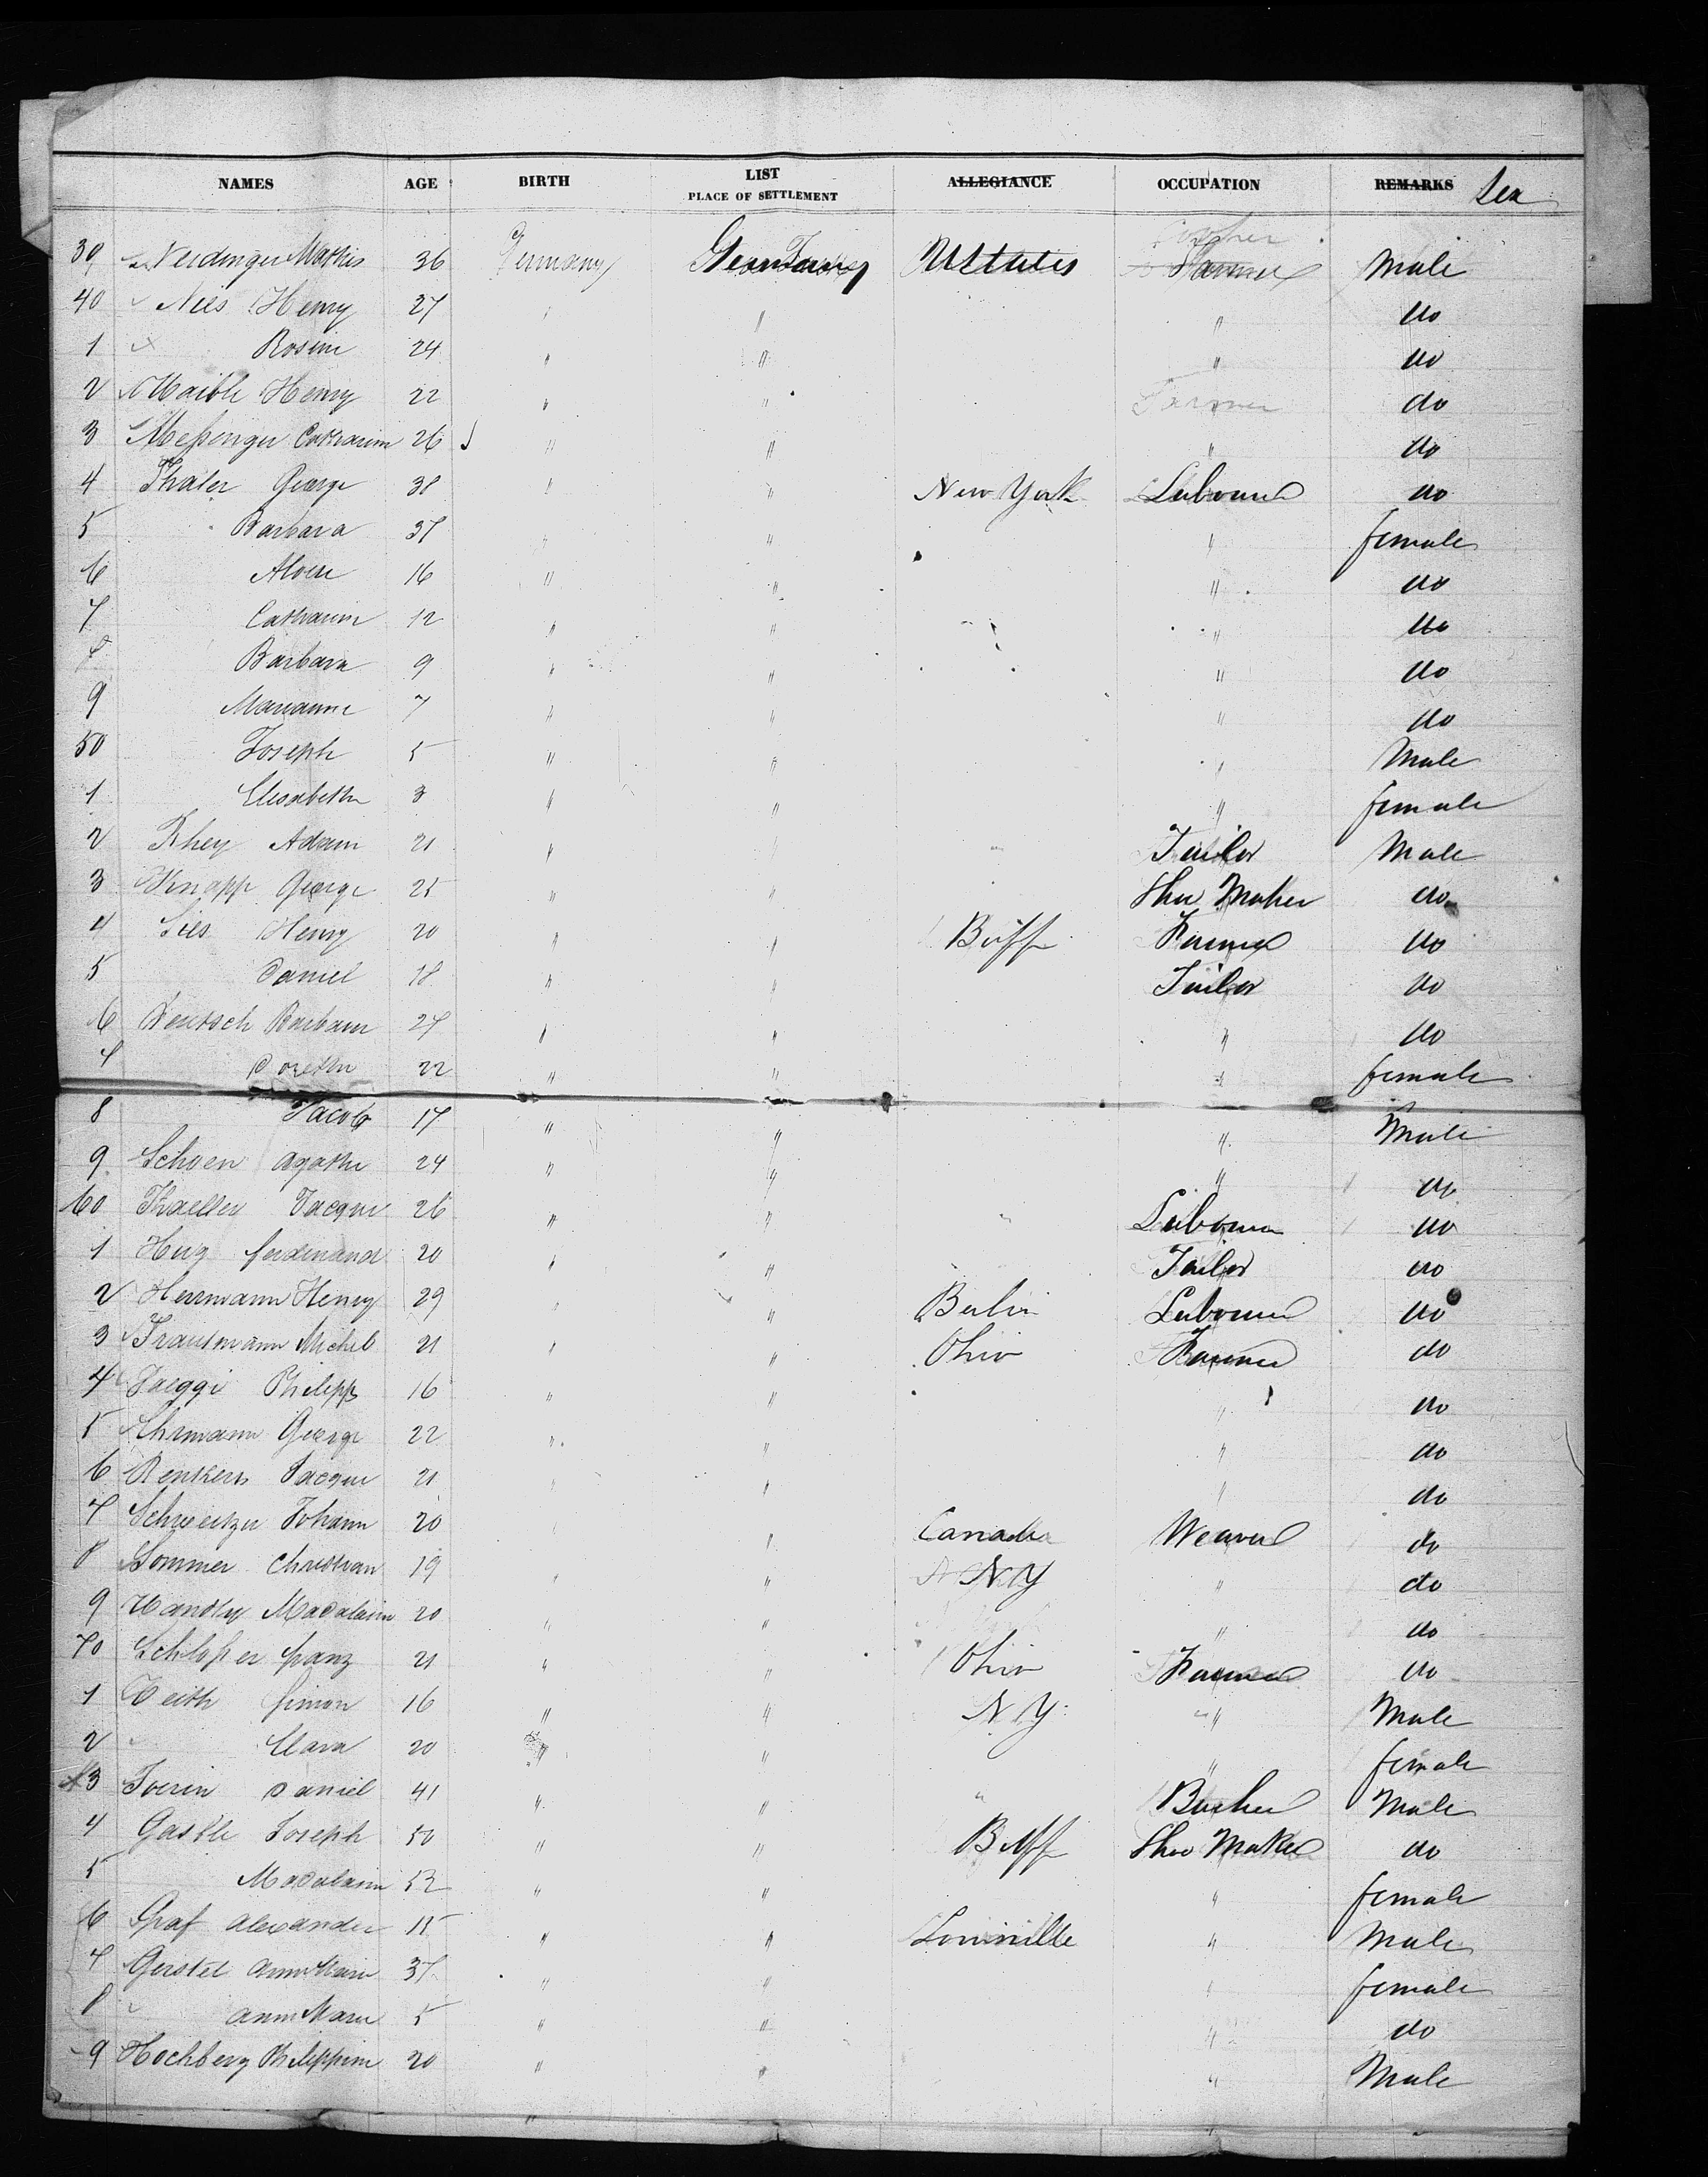 NAMES AGE BIRTH LIST PLACE OF SETTLEMENT ALLEGIANCE OCCUPATION REMARKS Sex
39 Neidinger Mathis 36 Germany Germany UStates Farmer Male
40 Nies Henry 27 " " " do
1 Rosine 24 " " " do
2 Maible Henry 22 " " Farmer do
3 Meßinger Catharine 26 " " " do
4 Thaler George 38 " " New York Labourer do
5 Barbara 37 " " " female
6 16 " " " do
7 Catharine 12 " " " do
8 Barbara 9 " " " do
9 Marianne 7 " " " do
50 Joseph 5 " " " Male
1 Elisabeth 3 " " " female
2 Rhey Adam 21 " " Tailor Male
3 Knapp George 25 " " Shoe Maker do
4 Sies Henry 20 " " Buff Farmer do
5 Daniel 18 " " Tailor do
6 Deutsch Barbara 27 " " " do
7 Dorethe 22 " " " female
8 Jacob 17 " " " Male
9 Schoen Agathe 24 " " " do
60 Jacque 26 " " Labourer do
1 Hug ferdinand 20 " " Tailor do
2 Herrmann Henry 29 " " Berlin Labourer do
3 Trautmann Michel 21 " " Ohio Farmer do
4 Jaeggi Philipp 16 " " " do
5 Ehrmann George 22 " " " do
6 Jacque 21 " " " do
7 Schweitzer Johann 20 " " Canada Weaver do
8 Sommer Christian 19 " " NY " do
9 Madalaine 20 " " " do
70 Schloßer franz 21 " " Ohio Farmer do
1 Veith Simon 16 " " NY " Male
2 Clara 20 " " " female
3 Daniel 41 " " " Male
4 Joseph 50 " " Buff Shoe Maker do
5 Madalaine 52 " " " female
6 Graf Alexander 15 " " Louisville " Male
7 Gerstel Anna Marie 37 " " " female
8 Anna Marie 5 " " " do
9 Hochberg Philippine 20 " " " Male